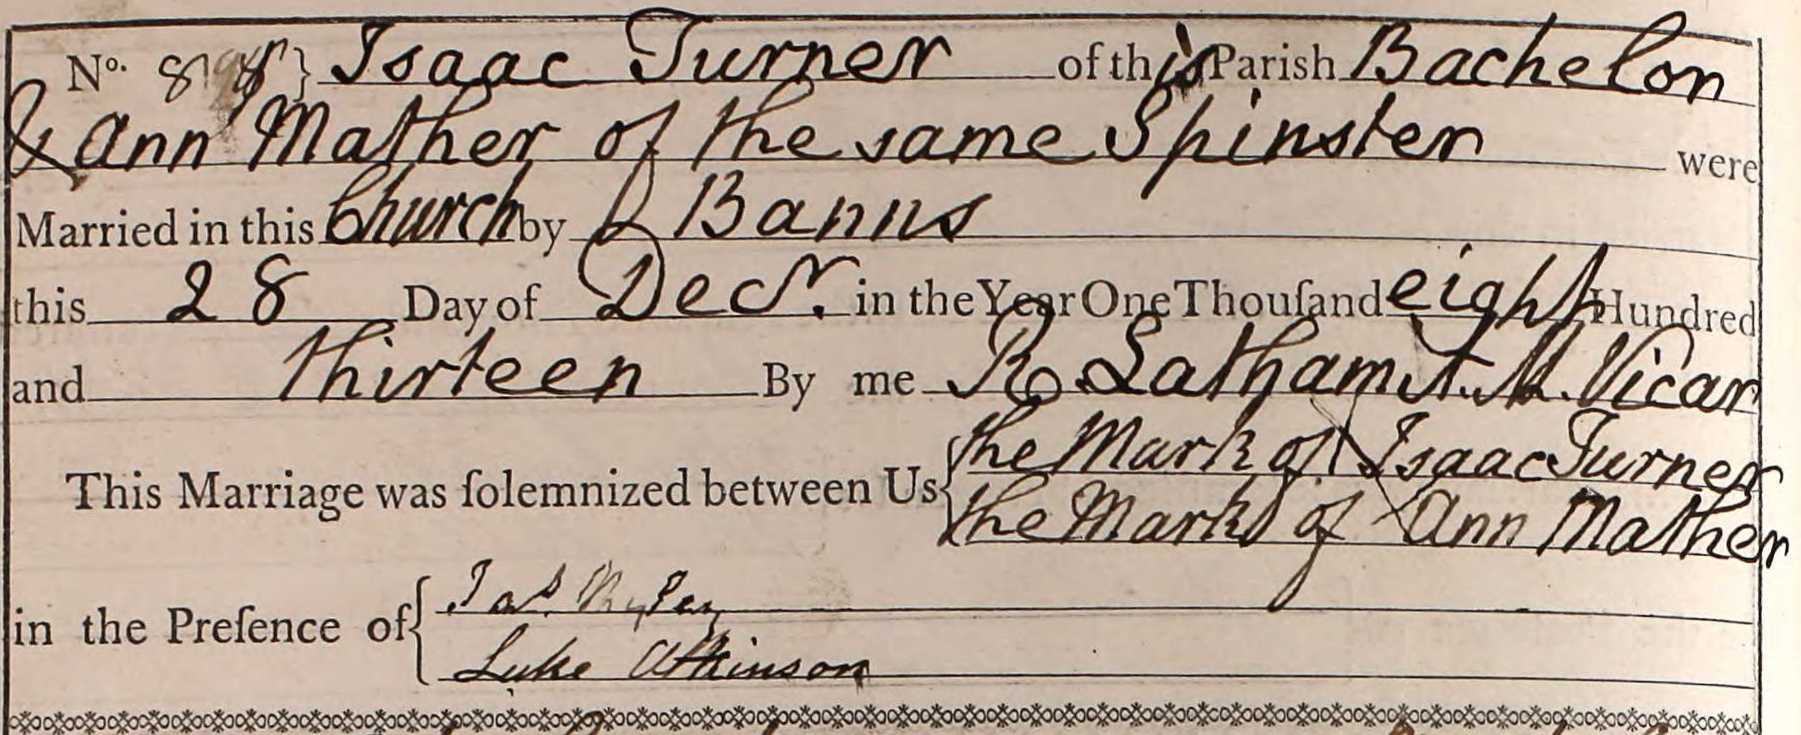 No. } Isaac Turner of this Parish Bachelor
& Ann Mather of the same Spinster were
Married in this Church by Banns
this 28 Day of Decr. in the Year One Thouſand eight Hundred
and thirteen By me R Latham A.M. Vicar
This Marriage was ſolemnized between Us { the Mark of X Isaac Turner
the Mark of X Ann Mather
in the Preſence of { Jas. Ryley
Luke Atkinson